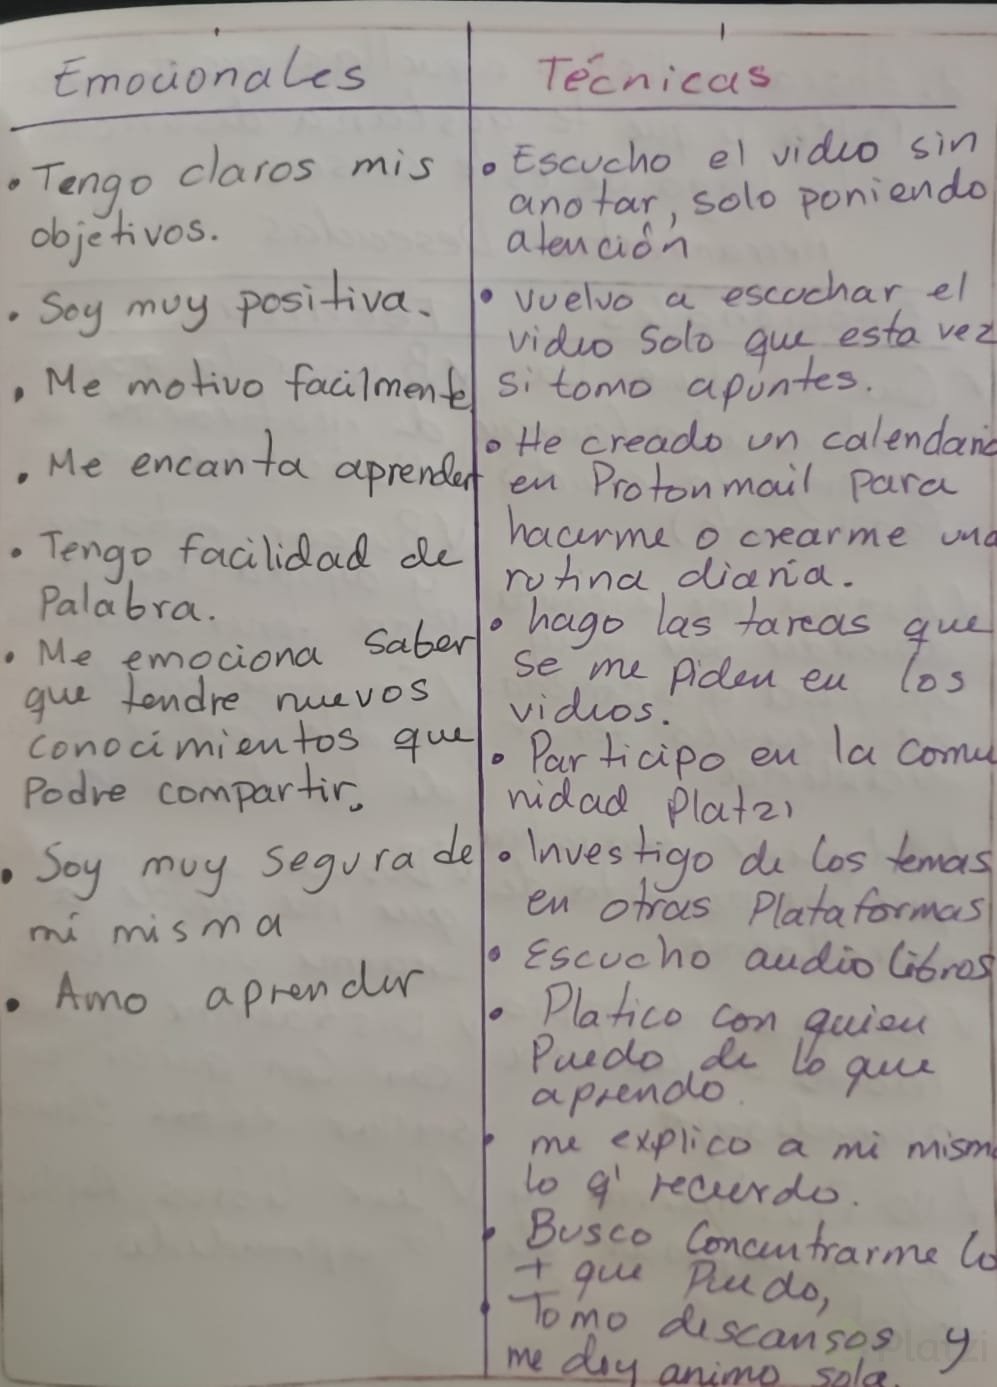 Emocionales
• Tengo claros mis
objetivos.
• Soy muy positiva.
• Me motivo facilmente
• Me encanta aprender
• Tengo facilidad de
Palabra.
• Me emociona saber
que tendre nuevos
conocimientos que
Podre compartir.
• Soy muy segura de
mi misma
• Amo aprender
Técnicas
• Escucho el video sin
anotar, solo poniendo
atención
• vuelvo a escuchar el
video solo que esta vez
si tomo apuntes.
• He creado un calendario
en Protonmail para
hacerme o crearme una
rutina diaria.
• hago las tareas que
se me piden en los
videos.
• Participo en la comu
nidad Platzi
• Investigo de los temas
en otras Plataformas
• Escucho audio libros
• Platico con quien
Puedo de lo que
aprendo.
• me explico a mi misma
lo q' recuerdo.
• Busco Concentrarme lo
+ que Puedo,
• Tomo descansos y
me doy animo sola.
Platzi